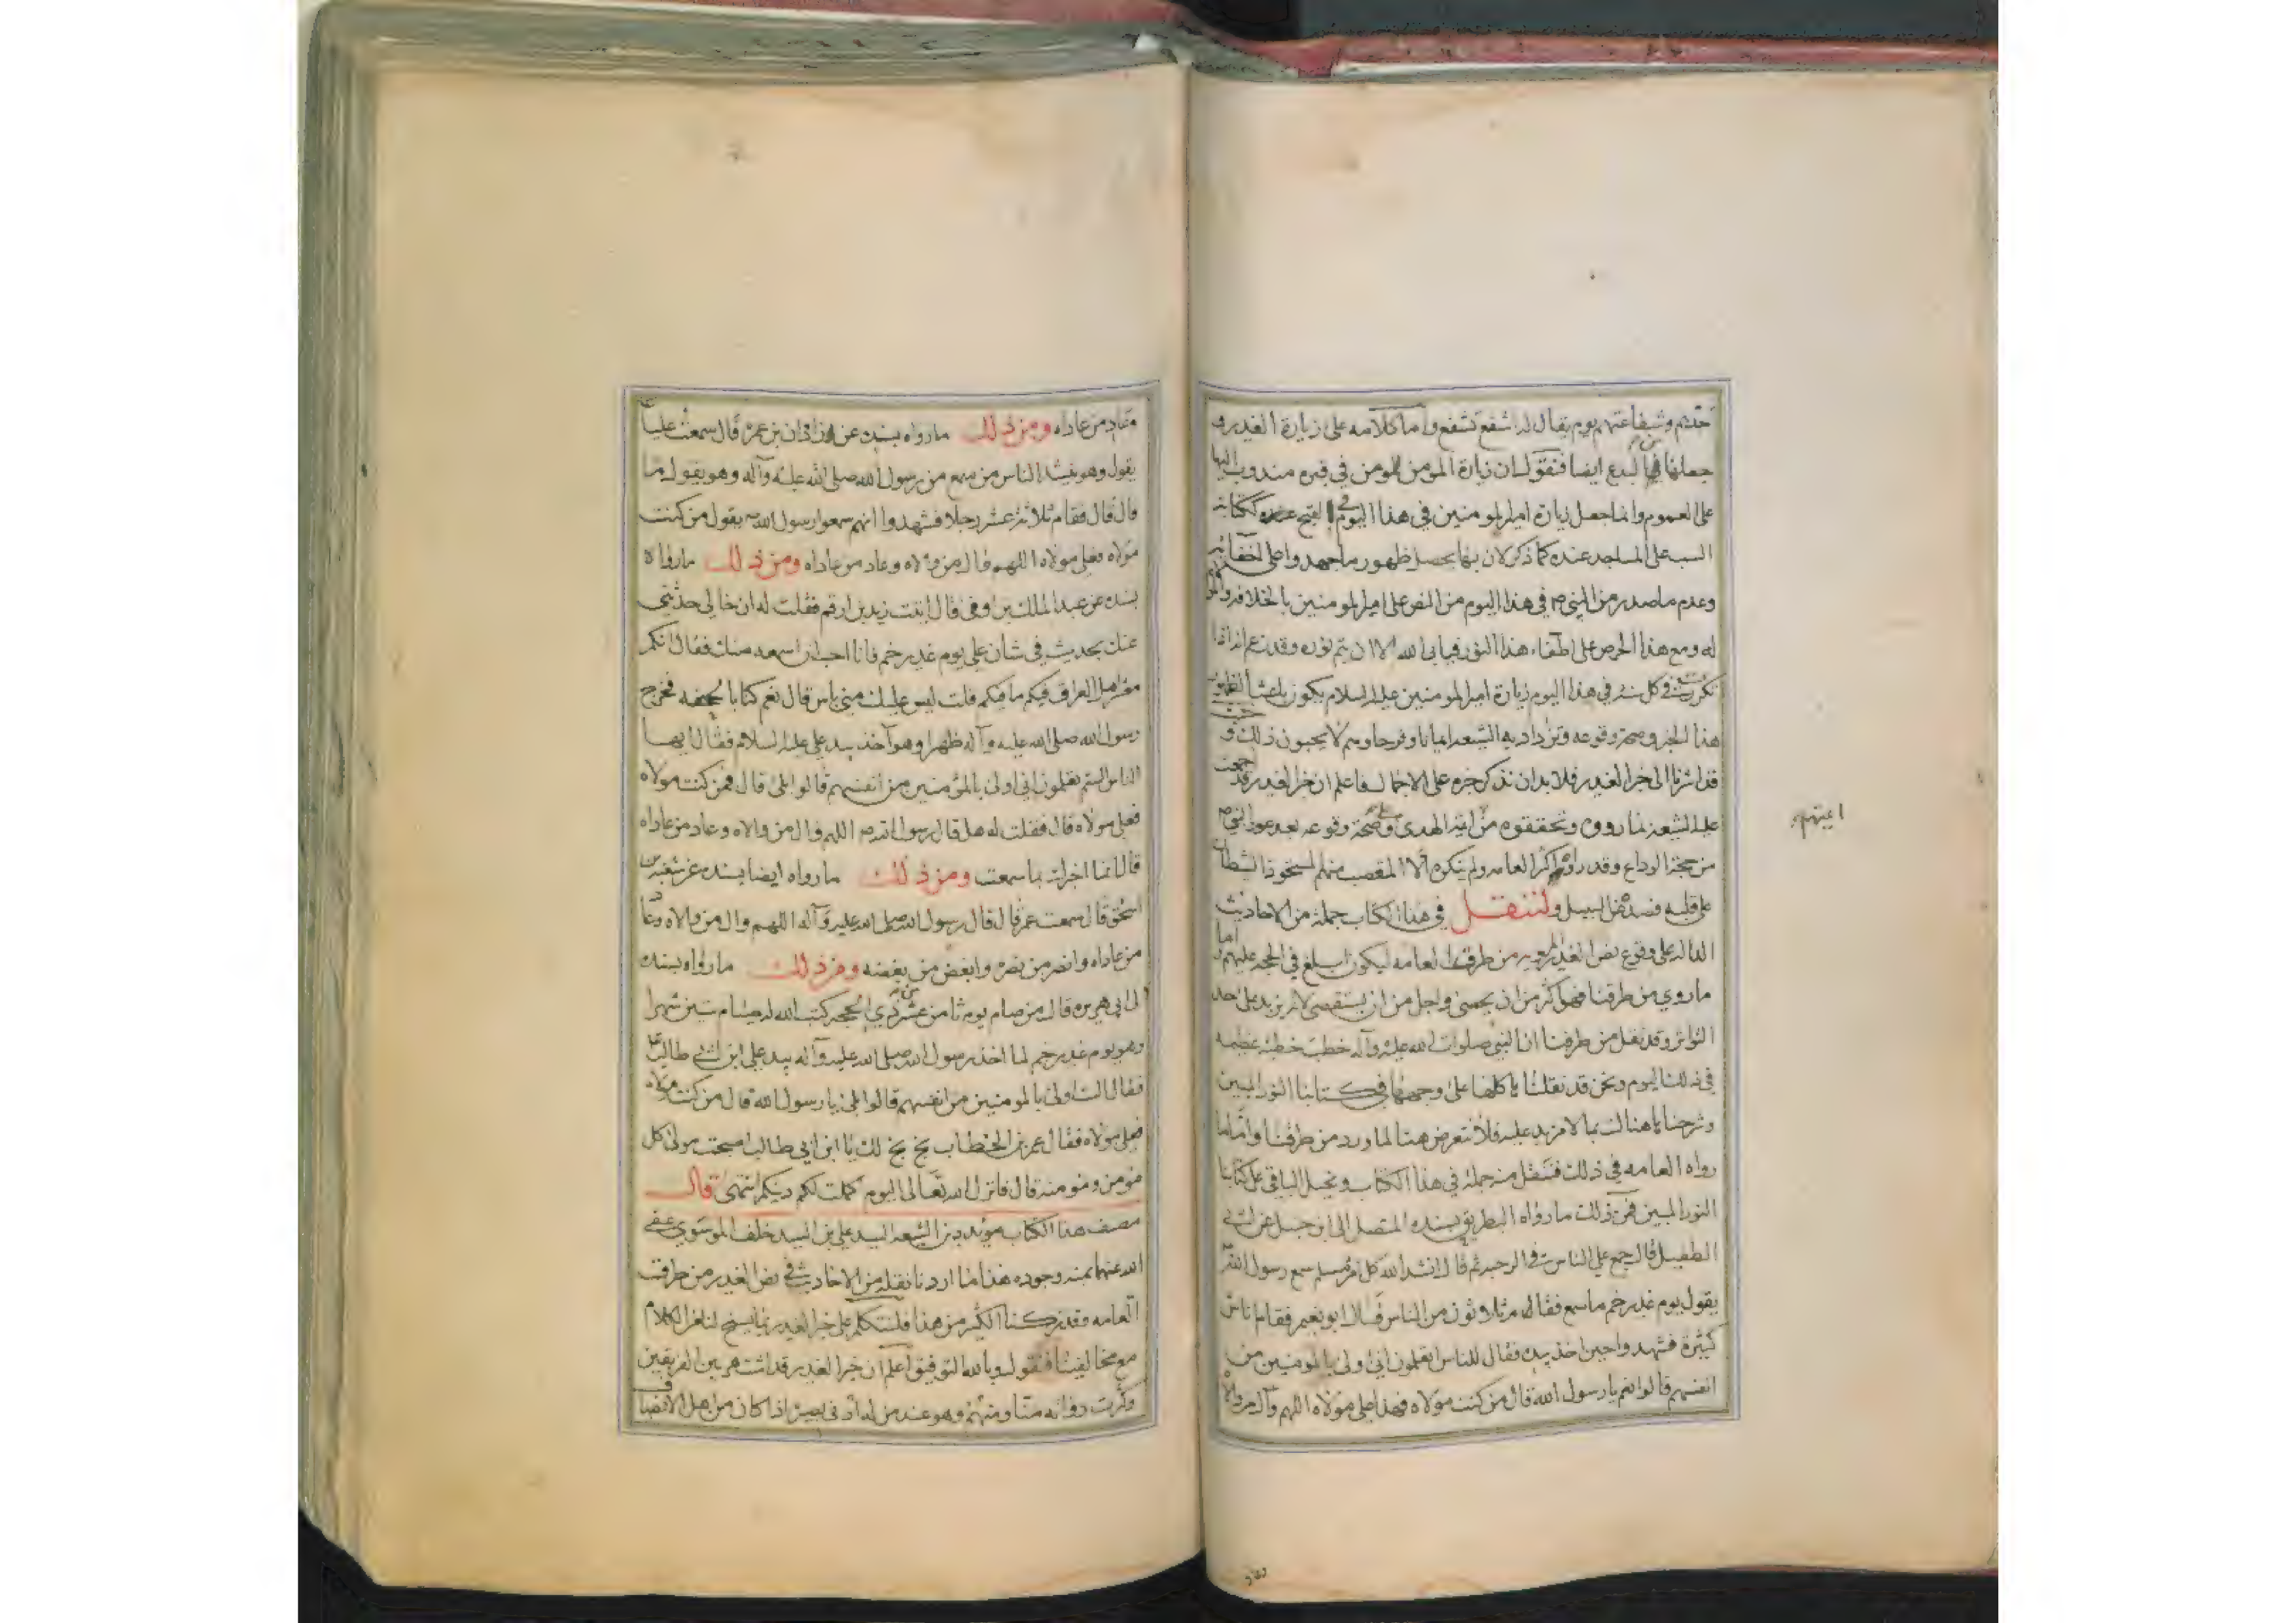 جدهم وشفاعتهم يوم يقال له اشفع تشفع واما كلامه على زيارة الغدير و
جعلها من البدع ايضا فنقول ان زيارة المومن للمومن في قبره مندوب اليها
على العموم وانما جعل زيارة امير المومنين في هذا اليوم
السب على المساجد عنده كما ذكر لان بها يحصل ظهور ما جهدوا على اخفائه
وعدم ما صدر من النبي ص في هذا اليوم من النص على امير المومنين بالخلافة
له ومع هذا الحرص على اطفاء هذا النور فيابى الله الا ان يتم نوره وقد زعم
في كل سنة في هذا اليوم زيارة امير المومنين عليه السلام يكون باعثا
هذا الخبر وصحة وقوعه وتزداد به الشيعة ايمانا وفرحا وهم لا يحبون ذلك و
قد اشرنا الى خبر الغدير فلا بد ان نذكر خبره على الاجمال فاعلم ان خبر الغدير قد اجمعت
عليه الشيعة لما رووه وتحققوه من ائمة الهدى على صحة وقوعه بعد عود النبي ص
من حجة الوداع وقد رواه اكثر العامه ولم ينكره الا المتعصب منهم استحوذ الشيطان
على قلبه فصده عن السبيل ولننقل في هذا الكتاب جملة من الاحاديث
الداله على وقوع نص الغدير من طرق العامه ليكون ابلغ في الحجه عليهم واما
ما روي من طرقنا فهو اكثر من ان يحصى واجل من ان يستقصى لانه يزيد على حد
التواتر وقد نقل من طرقنا ان النبي صلوات الله عليه وآله خطب خطبة عظيمه
في ذلك اليوم ونحن قد نقلناها كلها على وجهها في كتابنا النور المبين
وشرحناها هناك بما لا مزيد عليه فلا نتعرض هنا لما ورد من طرقنا واما ما
رواه العامه في ذلك فننقل منه جملة في هذا الكتاب ونحيل الباقي على كتابنا
النور المبين فمن ذلك ما رواه البطريق بسنده المتصل الى ابن حنبل عن ابي
الطفيل قال جمع علي الناس في الرحبة ثم قال انشد الله كل امرء مسلم سمع رسول الله
يقول يوم غدير خم ما سمع فقام ثلاثون من الناس قال ابو نعيم فقام اناس
كثيرة فشهدوا حين اخذ بيده فقال للناس اتعلمون اني اولى بالمومنين من
انفسهم قالوا نعم يا رسول الله قال من كنت مولاه فهذا علي مولاه اللهم وال من والاه
اعينهم
وعاد من عاداه ومن ذلك ما رواه بسنده عن زاذان بن عمر قال سمعت عليا
يقول وهو ينشد الناس من سمع من رسول الله صلى الله عليه وآله وهو يقول ما
قال قال فقام ثلاثة عشر رجلا فشهدوا انهم سمعوا رسول الله ص يقول من كنت
مولاه فعلي مولاه اللهم وال من والاه وعاد من عاداه ومن ذلك ما رواه
بسنده عن عبد الملك بن اوفى قال اتيت زيد بن ارقم فقلت له ان خالي حدثني
عنك بحديث في شان علي يوم غدير خم فانا احب ان اسمعه منك فقال انكم
معشر اهل العراق فيكم ما فيكم قلت ليس عليك مني باس قال نعم كنا بالجحفه فخرج
رسول الله صلى الله عليه وآله ظهرا وهو آخذ بيد علي عليه السلام فقال ايها
الناس الستم تعلمون اني اولى بالمؤمنين من انفسهم قالوا بلى قال فمن كنت مولاه
فعلي مولاه قال فقلت له هل قال رسول الله ص اللهم وال من والاه وعاد من عاداه
قال انما اخبرك بما سمعت ومن ذلك ما رواه ايضا بسنده عن شعبة بن
اسحق قال سمعت عمر قال قال رسول الله صلى الله عليه وآله اللهم وال من والاه وعاد
من عاداه وانصر من نصره وابغض من يبغضه ومن ذلك ما رواه بسنده
الى ابي هريره قال من صام يوم ثامن عشر من ذي الحجه كتب الله له صيام ستين شهرا
وهو يوم غدير خم لما اخذ رسول الله صلى الله عليه وآله بيد علي ابن ابي طالب ع
فقال الست اولى بالمومنين من انفسهم قالوا بلى يا رسول الله قال من كنت مولاه
فعلي مولاه فقال عمر بن الخطاب بخ بخ لك يا ابن ابي طالب اصبحت مولى كل
مؤمن ومومنة قال فانزل الله تعالى اليوم اكملت لكم دينكم انتهى قال
مصنف هذا الكتاب مؤيد دين الشيعه السيد علي بن السيد خلف الموسوي عفى
الله عنهما بمنه وجوده هذا ما اردنا نقله من الاحاديث في نص الغدير من طرق
العامه وقد تركنا اكثر من هذا فلنتكلم على خبر الغدير بما يسنح لنا من الكلام
مع مخالفينا فنقول وبالله التوفيق اعلم ان خبر الغدير قد اشتهر بين الفريقين
وكثرت رواته منا ومنهم وهو عند من له ادنى بصيرة اذا كان من اهل الانصاف